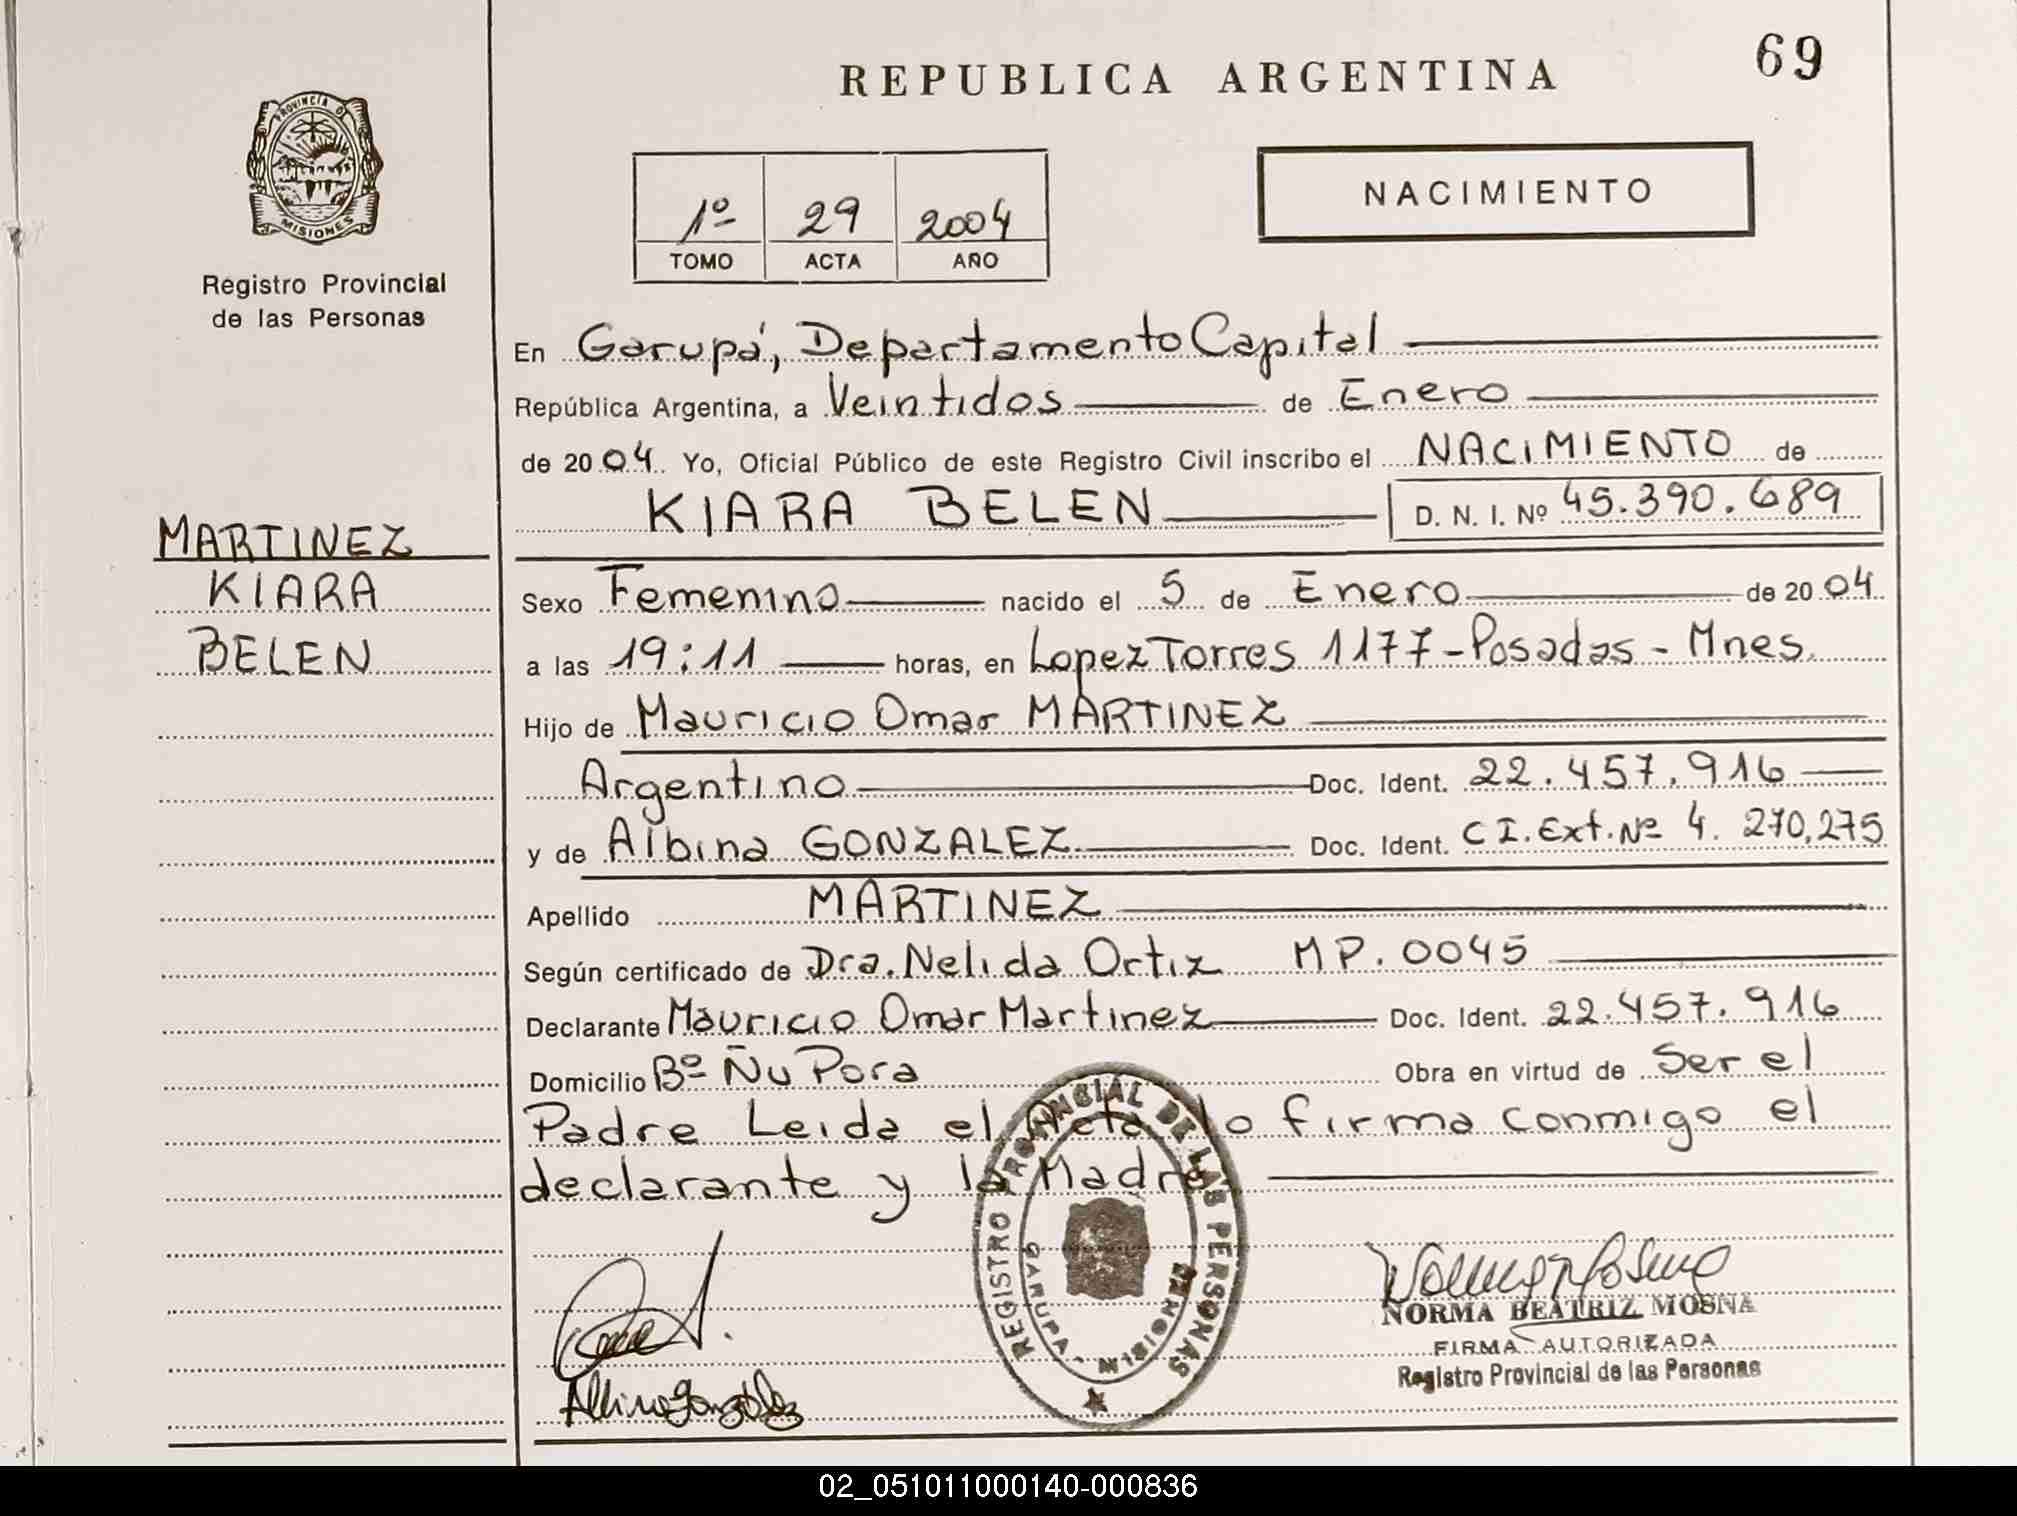 69
REPUBLICA ARGENTINA
PROVINCIA DE
MISIONES
Registro Provincial
de las Personas
1º 29 2004
TOMO ACTA AÑO
NACIMIENTO
En Garupá, Departamento Capital
República Argentina, a Veintidos de Enero
de 2004 Yo, Oficial Público de este Registro Civil inscribo el NACIMIENTO de
KIARA BELEN D. N. I. Nº 45.390.689
MARTINEZ
KIARA
BELEN
Sexo Femenino nacido el 5 de Enero de 2004
a las 19:11 horas, en Lopez Torres 1177-Posadas - Mnes.
Hijo de Mauricio Omar MARTINEZ
Argentino Doc. Ident. 22.457.916
y de Albina GONZALEZ Doc. Ident. C I. Ext. Nº 4. 270,275
Apellido MARTINEZ
Según certificado de Dra. Nelida Ortiz MP. 0045
Declarante Mauricio Omar Martinez Doc. Ident. 22.457.916
Domicilio Bº Ñu Pora Obra en virtud de Ser el
Padre Leida el Acta lo firma conmigo el
declarante y la Madre
REGISTRO PROVINCIAL DE LAS PERSONAS
GARUPA - MISIONES
Albina González
NORMA BEATRIZ MOSNA
FIRMA AUTORIZADA
Registro Provincial de las Personas
02_051011000140-000836